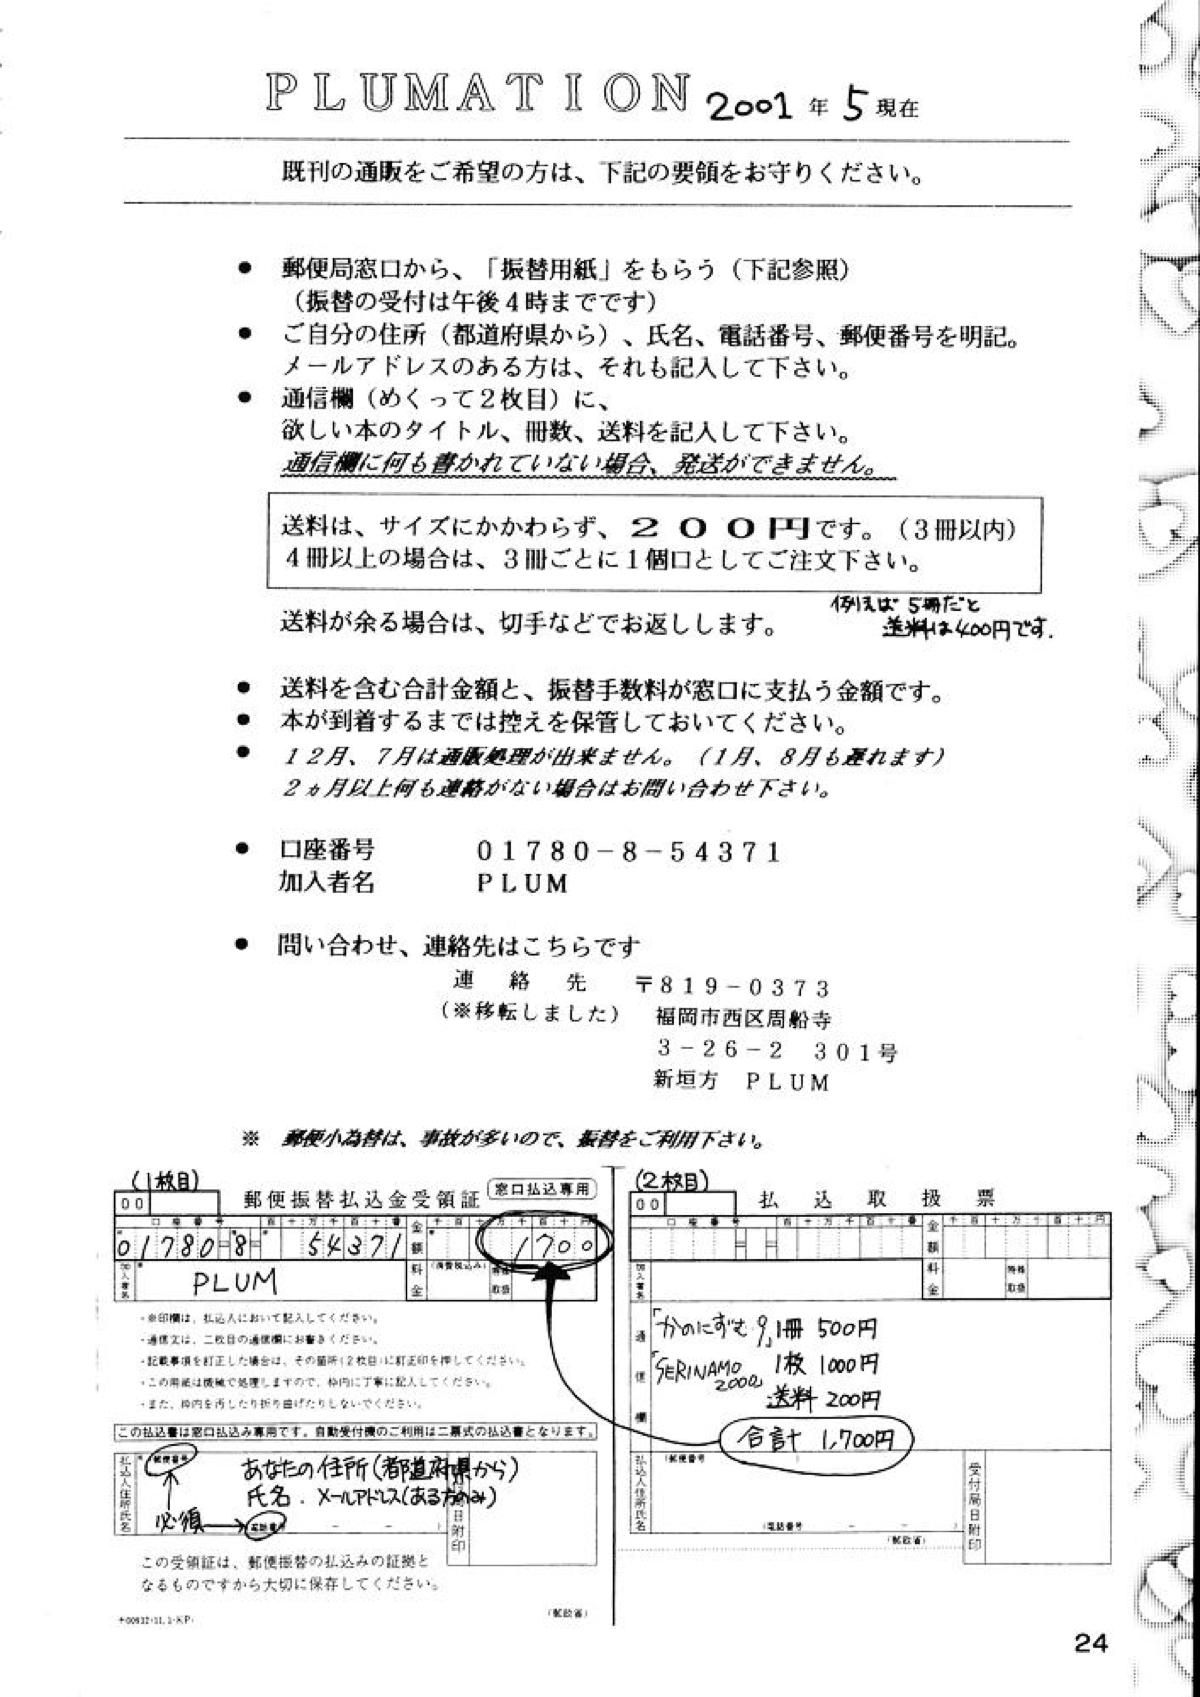 PLUMATION 2001年5現在
既刊の通販をご希望の方は、下記の要領をお守りください。
● 郵便局窓口から、「振替用紙」をもらう（下記参照）
（振替の受付は午後4時までです）
● ご自分の住所（都道府県から）、氏名、電話番号、郵便番号を明記。
メールアドレスのある方は、それも記入して下さい。
● 通信欄（めくって2枚目）に、
欲しい本のタイトル、冊数、送料を記入して下さい。
通信欄に何も書かれていない場合、発送ができません。
送料は、サイズにかかわらず、200円です。（3冊以内）
4冊以上の場合は、3冊ごとに1個口としてご注文下さい。
例えば 5冊だと
送料が余る場合は、切手などでお返しします。
送料は400円です.
● 送料を含む合計金額と、振替手数料が窓口に支払う金額です。
● 本が到着するまでは控えを保管しておいてください。
● 12月、7月は通販処理が出来ません。（1月、8月も遅れます）
2ヵ月以上何も連絡がない場合はお問い合わせ下さい。
● 口座番号 01780-8-54371
加入者名 PLUM
● 問い合わせ、連絡先はこちらです
連絡先 〒819-0373
（※移転しました） 福岡市西区周船寺
3-26-2 301号
新垣方 PLUM
※ 郵便小為替は、事故が多いので、振替をご利用下さい。
(1枚目)
00 郵便振替払込金受領証 窓口払込専用
口座番号 百十万千百十番 金額 千百十万千百十円
01780-8-54371 1700
加入者名 PLUM 料金 (消費税込み) 特殊取扱
・※印欄は、払込人において記入してください。
・通信文は、二枚目の通信欄にお書きください。
・記載事項を訂正した場合は、その箇所(2枚目)に訂正印を押してください。
・この用紙は機械で処理しますので、枠内に丁寧に記入してください。
・また、枠内を汚したり折り曲げたりしないでください。
この払込書は窓口払込み専用です。自動受付機のご利用は二票式の払込書となります。
払込人住所氏名 (郵便番号
あなたの住所(都道府県から)
氏名. メールアドレス(ある方のみ)
必須→(電話番号 - - )
日附印
この受領証は、郵便振替の払込みの証拠と
なるものですから大切に保存してください。
(郵政省)
(2枚目)
00 払込取扱票
口座番号 百十万千百十番 金額 千百十万千百十円
加入者名 料金 特殊取扱
通信欄
「かのにずむ9」1冊 500円
「SERINAMO 2000」 1枚 1000円
送料 200円
合計 1,700円
払込人住所氏名 (郵便番号
(電話番号 - - )
(郵政省)
受付局日附印
24